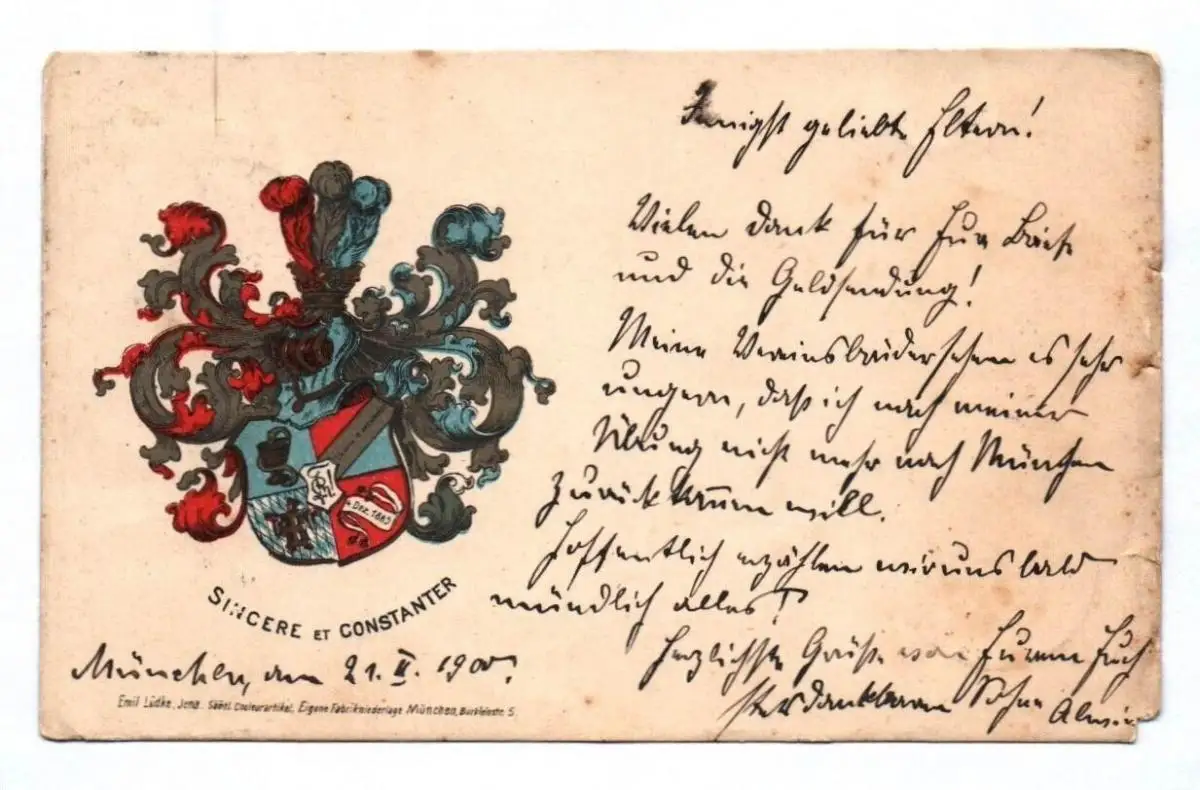 Innigst geliebte Eltern!
Vielen Dank für Eure Briefe
und die Geldsendung!
Meine Vereinsbrüder sehen es sehr
ungern, daß ich nach meiner
Übung nicht mehr nach München
zurückkommen will.
Hoffentlich erzählen wir uns bald
mündlich alles!
Herzlichste Grüße von Eurem Euch
stets dankbaren Sohne
Dez. 1883
SINCERE ET CONSTANTER
München, am 21. II. 1900.
Emil Lüdke, Jena. Sämtl. Couleurartikel. Eigene Fabrikniederlage München, 5.